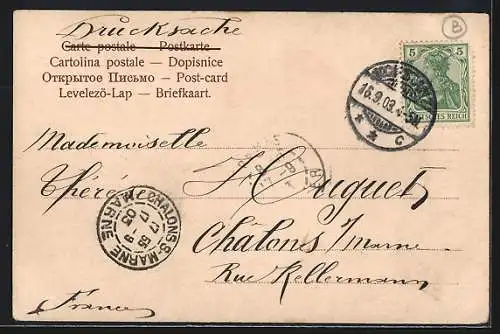 Drucksache
Carte postale — Postkarte
Cartolina postale — Dopisnice
Открытое Письмо — Post-card
Levelező-Lap — Briefkaart.
B
5 5
DEUTSCHES REICH
16.9.03. 4-5N.
* * c
Mademoiselle
Thérèse
Châlons s/marne
Rue Kellermann
France
CHALONS-S-MARNE
MARNE